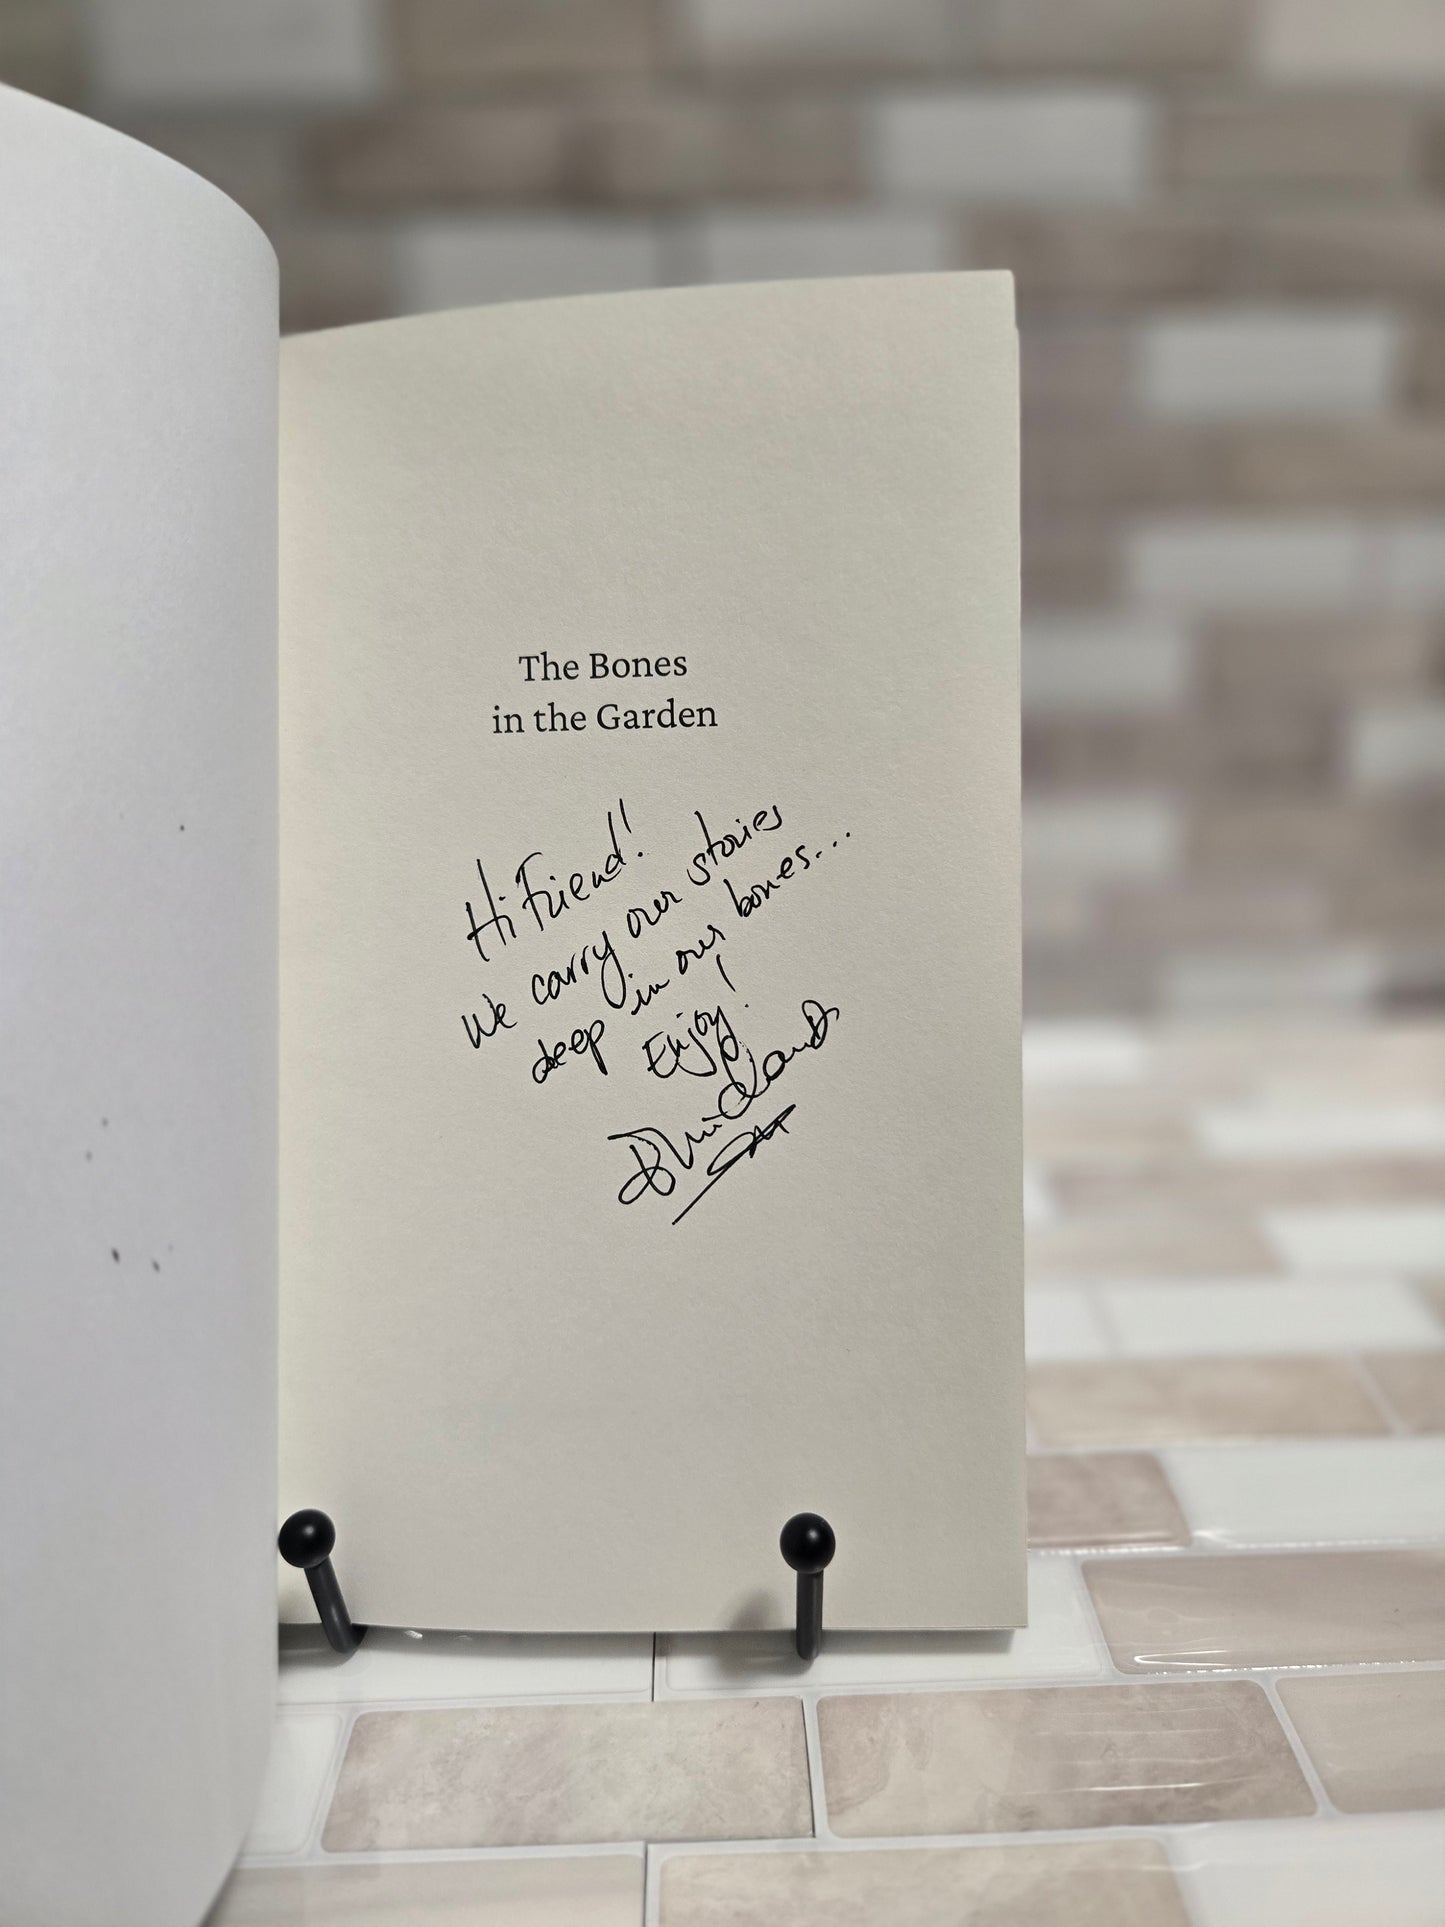 The Bones
in the Garden
Hi Friend!
We carry our stories
deep in our bones...
Enjoy!